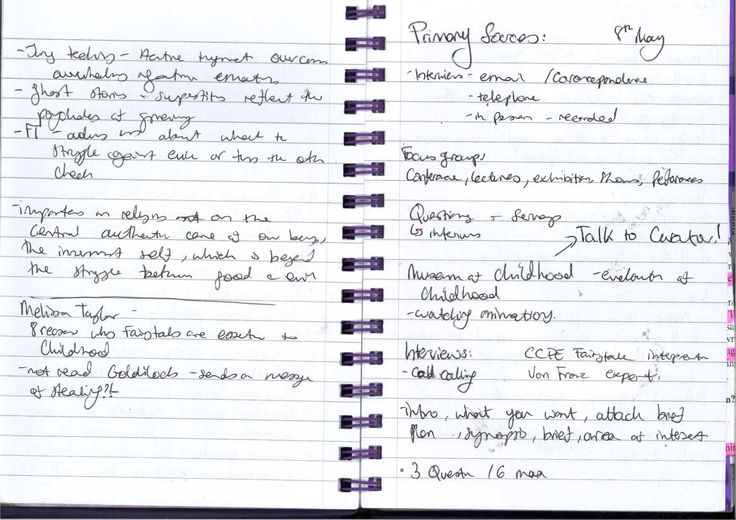 - Active overcome
negative emotions
- ghost stories - reflect the
psychodes of grieving
- FT - about whether to
struggle against evil or turn the other
cheek
- on religion not on the
central authentic core of our being,
the innermost self, which is beyond
the struggle between good & evil
Melissa Taylor -
8 reasons why Fairytales are essential to
childhood
- not read Goldilocks - sends a message
of stealing?!
Primary Sources: 8th May
- Interviews - email / Coorespondence
- telephone
- in person - recorded
Focus groups
Conference, lectures, exhibition, Shows, Performances
Questions + Surveys
↳ interviews
Talk to Curator!
Museum of Childhood - evolution of
Childhood
- watching animations.
Interviews: CCPE Fairytale interpretation
- Cold calling Von Franz expert.
- intro, what you want, attach brief
plan, synopsis, brief, area of interest
• 3 Questions / 6 max